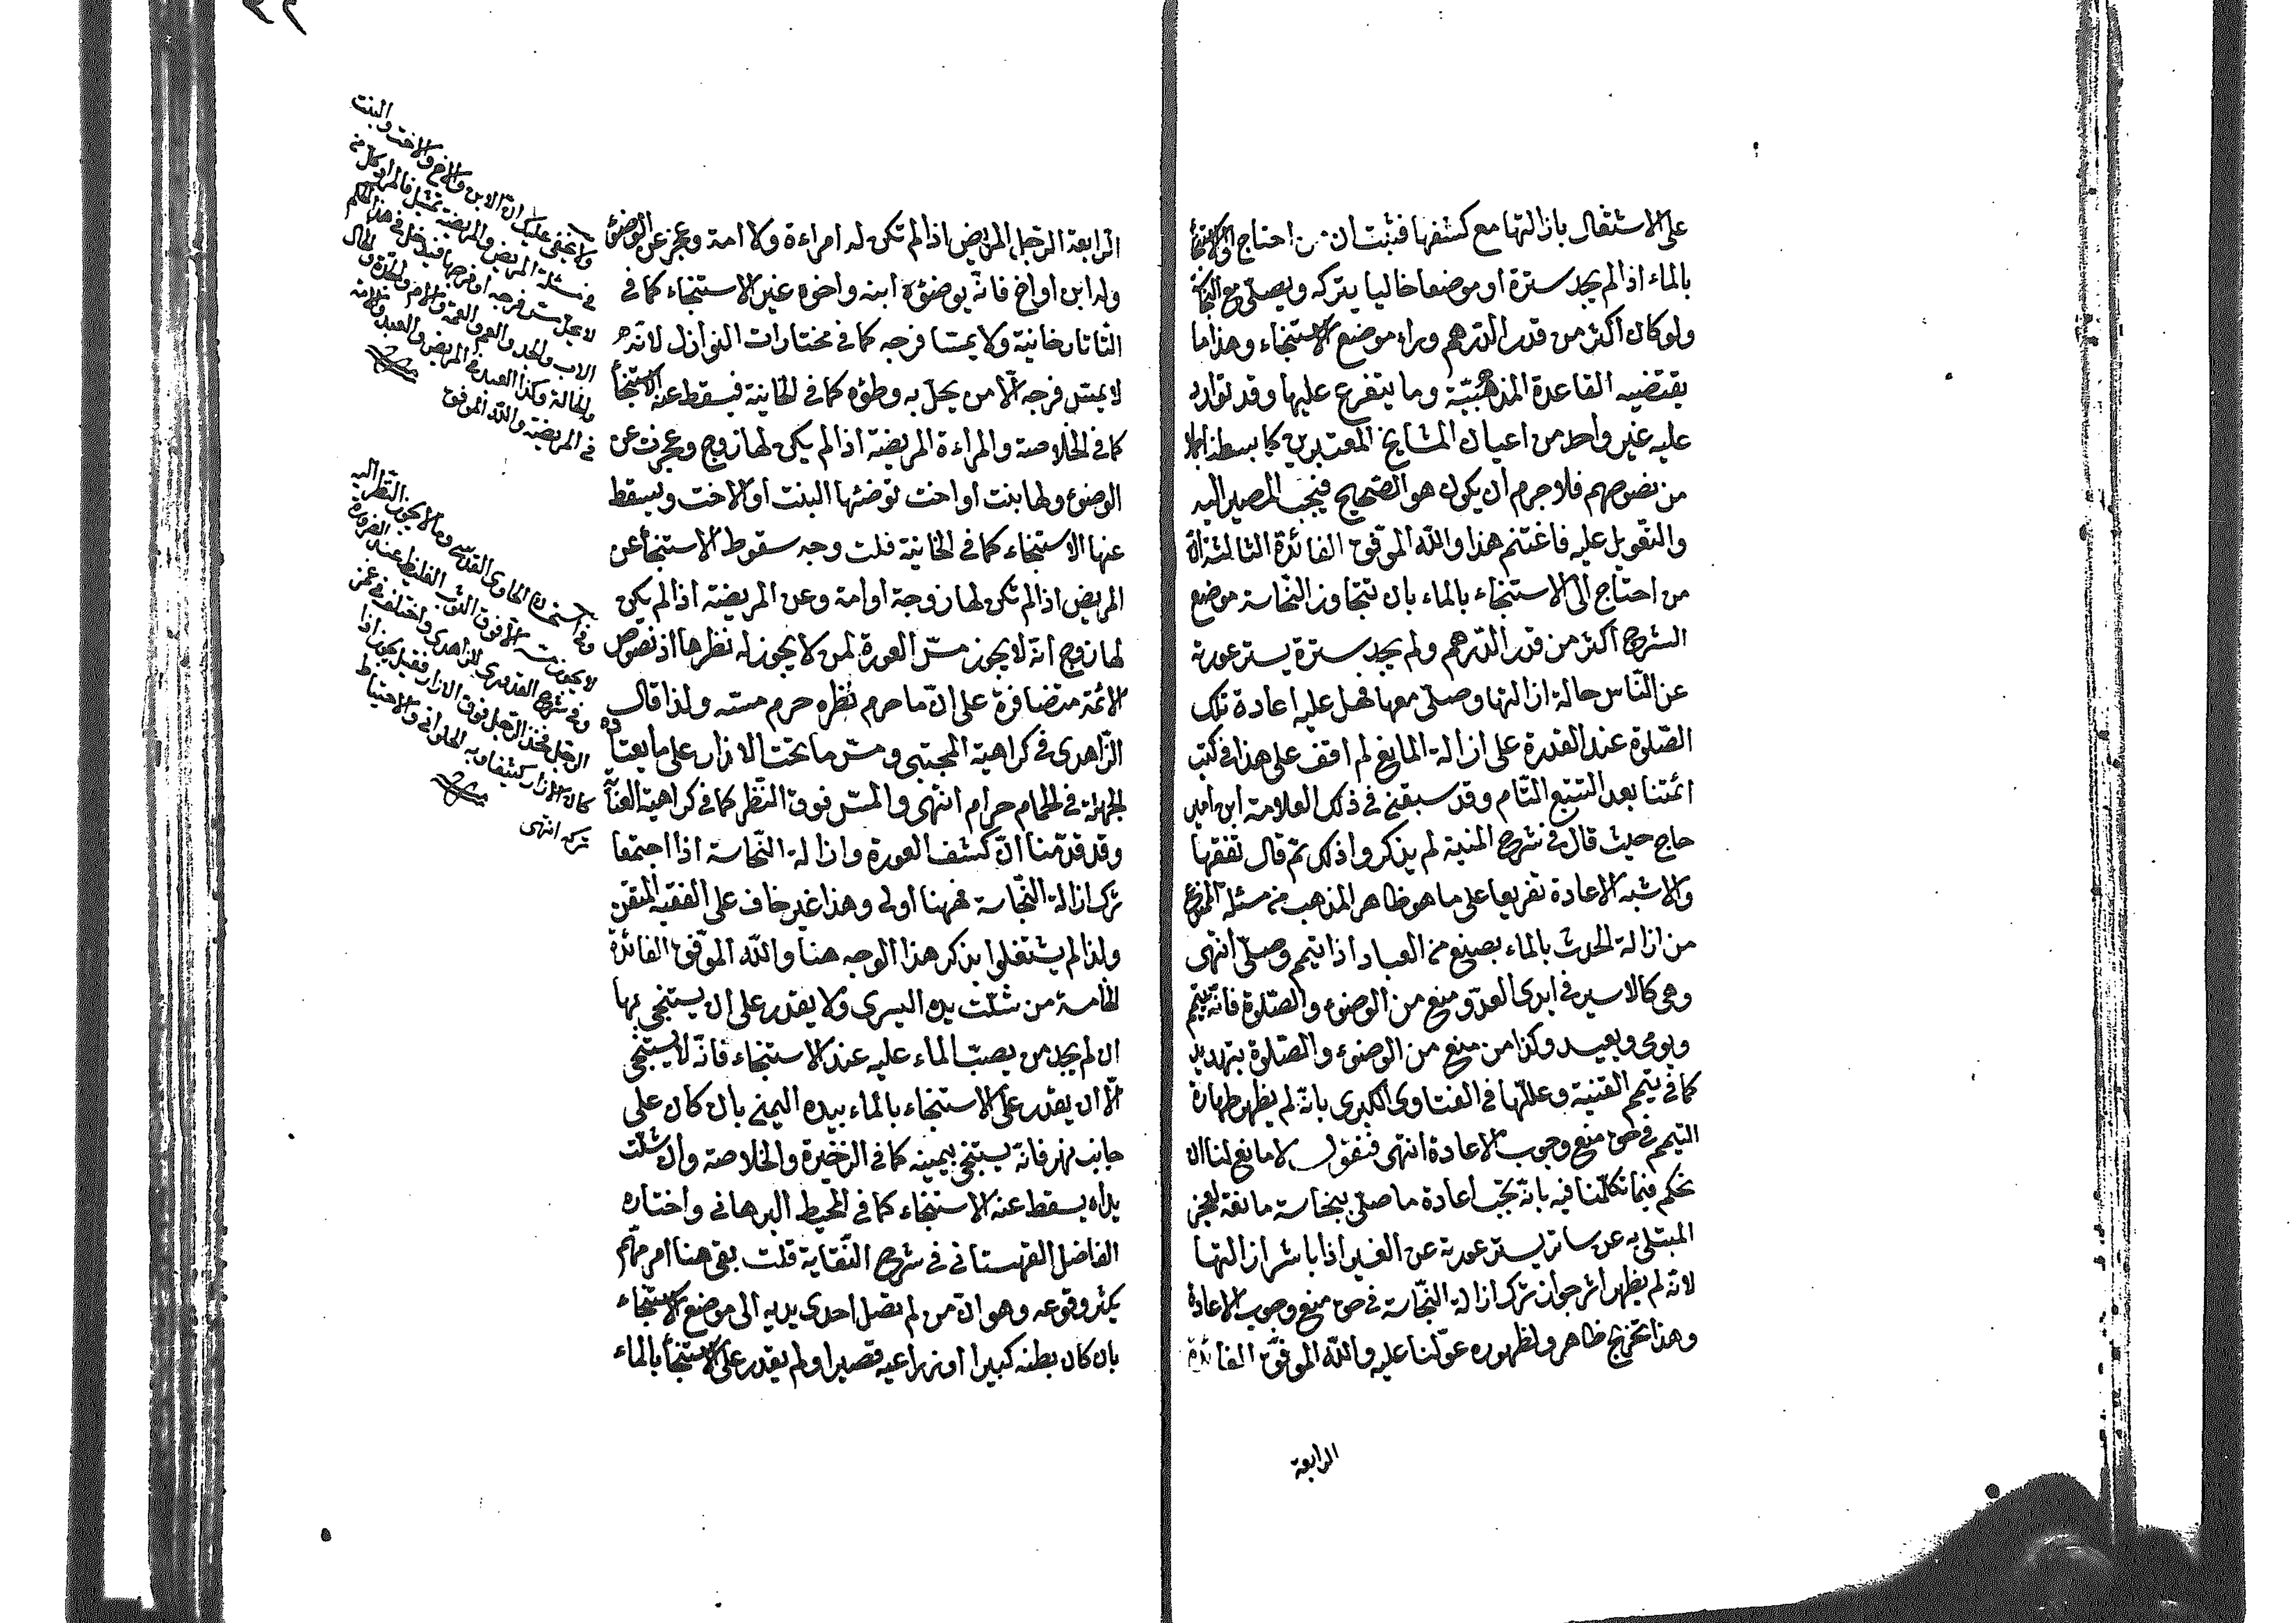 على الاشتغال بازالتها مع كشفها فثبت ان من احتاج الى الاستنجاء
بالماء اذا لم يجد سترة او موضعا خاليا يتركه ويصلى مع النجاسة
ولو كان اكثر من قدر الدرهم وراء موضع الاستنجاء وهذا ما
يقتضيه القاعدة المذهبية وما يتفرع عليها وقد توارد
عليه غير واحد من اعيان المشايخ المعتبرين كما بسطنا
من نصوصهم فلا جرم ان يكون هو الصحيح فيجب المصير اليه
والتعويل عليه فاغتنم هذا والله الموفق الفائدة الثالثة ان
من احتاج الى الاستنجاء بالماء بان تتجاوز النجاسة موضع
الشرج اكثر من قدر الدرهم ولم يجد سترة يستر عورته
عن الناس حالة ازالتها وصلى معها فهل عليه اعادة تلك
الصلوة عند القدرة على ازالة المانع لم اقف على هذا فى كتب
ائمتنا بعد التتبع التام وقد سبقنى فى ذلك العلامة ابن امير
حاج حيث قال فى شرح المنية لم يذكروا ذلك ثم قال تفقها
والاشبه الاعادة تفريعا على ما هو ظاهر المذهب من مسئلة الممنوع
من ازالة الحدث بالماء بصنع من العباد اذا تيمم وصلى انتهى
وهى كالاسير فى ايدى العدو منع من الوضوء والصلوة فانه يتيمم
ويومى ويعيد وكذا من منع من الوضوء والصلوة بتهديد
كما فى تيمم القنية وعللها فى الفتاوى الكبرى بانه لم يظهر طهارة
التيمم فى حق منع وجوب الاعادة انتهى فنقول لا مانع لنا ان
نحكم فيما تكلمنا فيه بانه يجب اعادة ما صلى بنجاسة مانعة لعجز
المبتلى به عن ساتر يستر عورته عن الغير اذا باشر ازالتها
لانه لم يظهر اثر جواز ترك ازالة النجاسة فى حق منع وجوب الاعادة
وهذا تخريج ظاهر ولظهوره عولنا عليه والله الموفق الفائدة
الرابعة
الرابعة الرجل المريض اذا لم تكن له امراءة ولا امة وعجز عن الوضوء
وله ابن او اخ فانه يوضئه ابنه واخوه غير الاستنجاء كما فى
التاتارخانية ولا يمسا فرجه كما فى مختارات النوازل لانه
لا يمس فرجه الا من يحل به وطؤه كما فى الخانية فيسقط عنه الاستنجأ
كما فى الخلاصة والمراءة المريضة اذا لم يكن لها زوج وعجزت عن
الوضوء ولها بنت او اخت توضئها البنت او الاخت ويسقط
عنها الاستنجاء كما فى الخانية قلت وجه سقوط الاستنجأ عن
المريض اذا لم تكن لها زوجة او امة وعن المريضة اذا لم يكن
لها زوج انه لا يجوز مس العورة لمن لا يجوز له نظرها اذ نصوص
الائمة متضافرة على ان ما حرم نظره حرم مسه ولذا قال
الزاهدى فى كراهية المجتبى ومس ما تحت الازار على ما يعتاده
الجهلة فى الحمام حرام انتهى والمس فوق النظر كما فى كراهية العناية
وقد قدمنا ان كشف العورة وازالة النجاسة اذا اجتمعا
ترك ازالة النجاسة فههنا اولى وهذا غير خاف على الفقيه المتقن
ولذا لم يشتغلوا بذكر هذا الوجه هنا والله الموفق الفائدة
الخامسة من شلت يده اليسرى ولا يقدر على ان يستنجى بها
ان لم يجد من يصب الماء عليه عند الاستنجاء فانه لا يستنجى
الا ان يقدر على الاستنجاء بالماء بيده اليمنى بان كان على
جانب نهر فانه يستنجى بيمينه كما فى الذخيرة والخلاصة وان شلت
يداه يسقط عنه الاستنجاء كما فى المحيط البرهانى واختاره
الفاضل القهستانى فى شرح النقاية قلت بقى هنا امر مهم
يكثر وقوعه وهو ان من لم تصل احدى يديه الى موضع الاستنجاء
بان كان بطنه كبيرا او ذراعيه قصيرا ولم يقدر على الاستنجأ بالماء
ولا يخفى عليك ان الابن والاخ والاخت والبنت
فى مسئلة المريض والمريضة تمثيل فالمراد كل من
لا يحل مس فرجه او فرجها فيدخل فى هذا الحكم
الاب والجد والعم والعمة والام والجدة والخال
والخالة وكذا العبد فى المريض والعبد والامة
فى المريضة والله الموفق
وفى استحسان الحاوى القدسى وما لا يجوز النظر اليه
لا يجوز مسه الا فوق الثوب الغليظ عند الضرورة
وفى شرح القدورى للزاهدى واختلف فى غمز
الرجل فخذ الرجل فوق الازار فقيل يجوز اذا
كان الازار كثيفا وبه الحلوانى والاحتياط
تركه انتهى